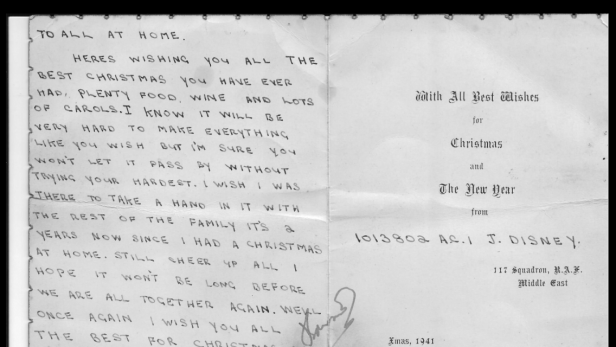 TO ALL AT HOME.
HERES WISHING YOU ALL THE
BEST CHRISTMAS YOU HAVE EVER
HAD, PLENTY FOOD, WINE AND LOTS
OF CAROLS. I KNOW IT WILL BE
VERY HARD TO MAKE EVERYTHING
LIKE YOU WISH BUT I'M SURE YOU
WON'T LET IT PASS BY WITHOUT
TRYING YOUR HARDEST. I WISH I WAS
THERE TO TAKE A HAND IN IT WITH
THE REST OF THE FAMILY IT'S 2
YEARS NOW SINCE I HAD A CHRISTMAS
AT HOME. STILL CHEER UP ALL I
HOPE IT WON'T BE LONG BEFORE
WE ARE ALL TOGETHER AGAIN. WELL
ONCE AGAIN I WISH YOU ALL
THE BEST FOR CHRISTMAS
With All Best Wishes
for
Christmas
and
The New Year
from
1013802 A.C.1 J. DISNEY.
117 Squadron, R.A.F.
Middle East
Xmas, 1941